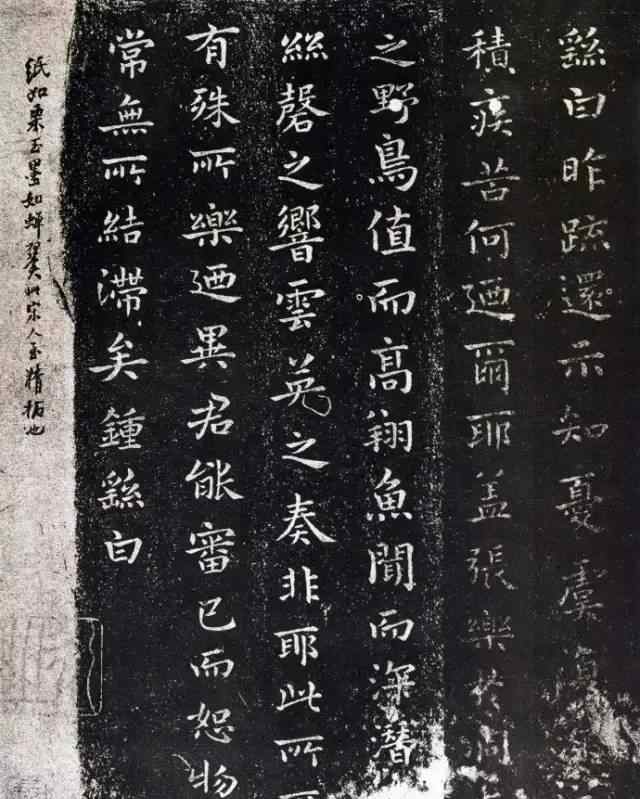 繇白昨疏還示知憂虞復
積疾苦何迺爾耶盖張樂於洞
之野鳥值而高翔魚聞而深潛
絲磬之響雲英之奏非耶此所
有殊所樂迺異君能審己而恕物
常無所結滯矣鍾繇白
紙如栗玉墨如蟬翼此宋人至精拓也